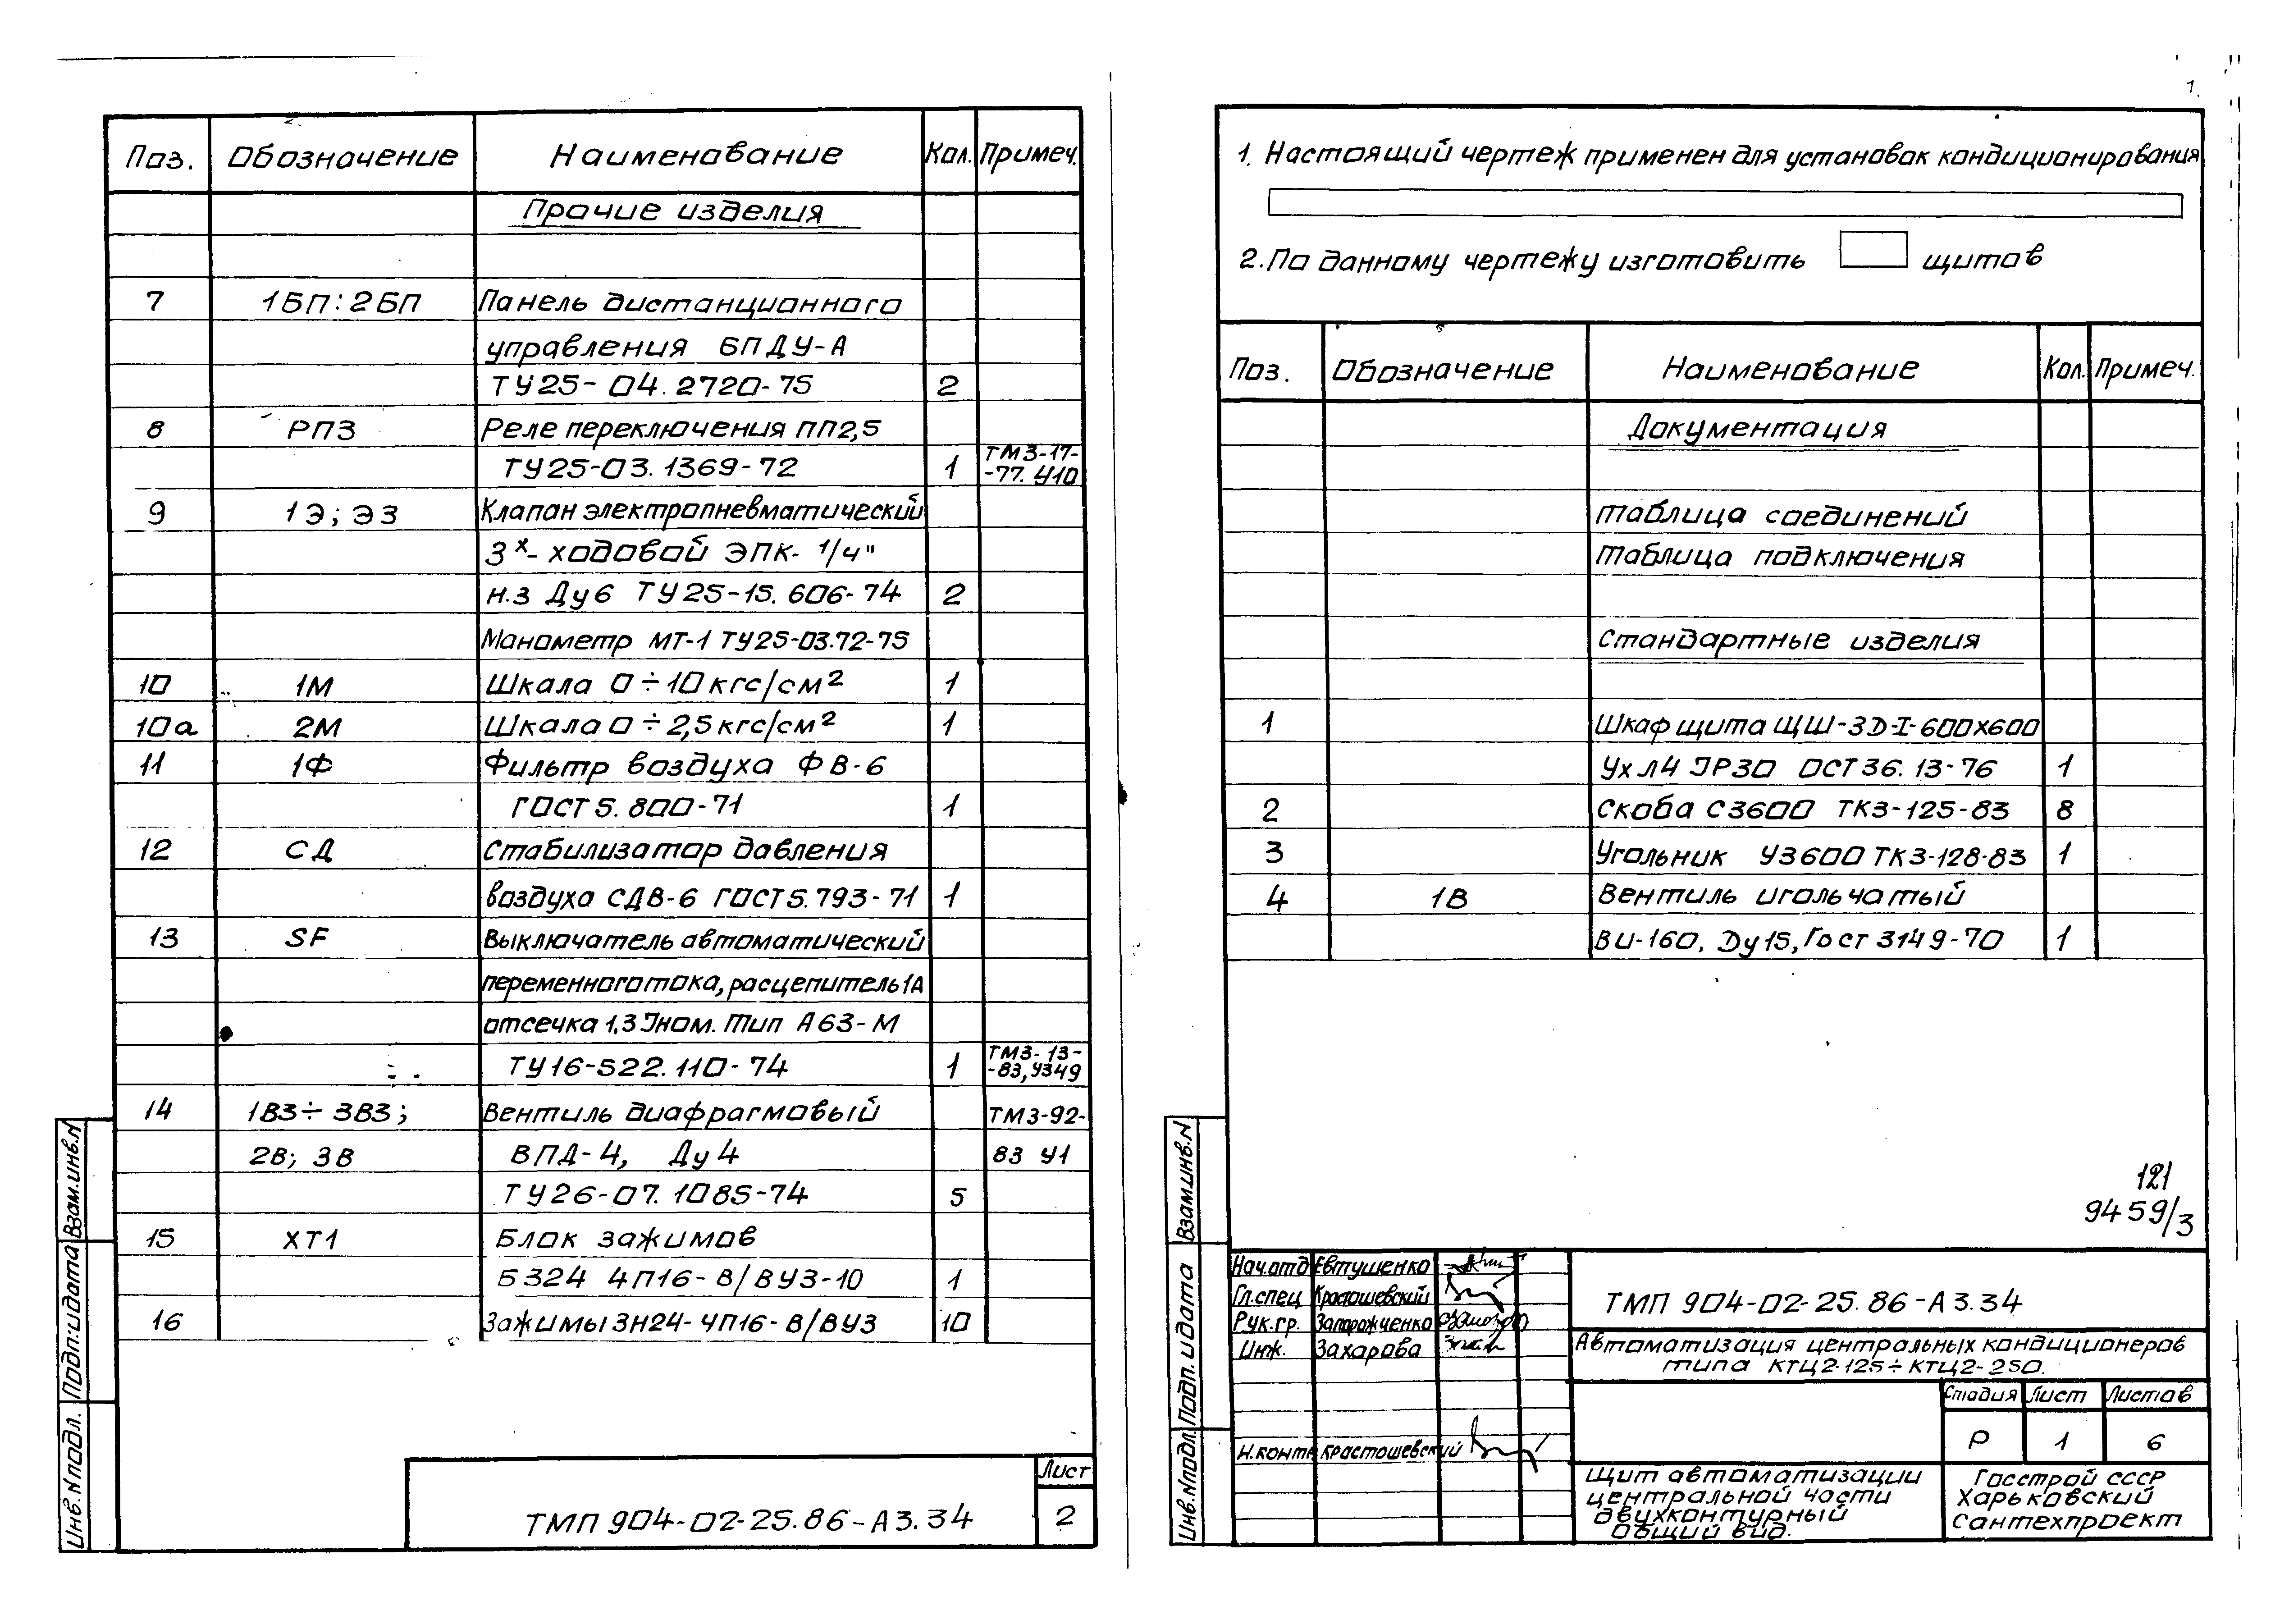 Поз. Обозначение Наименование Кол. Примеч.
Прочие изделия
7 1БП: 2БП Панель дистанционного
управления БПДУ-А
ТУ25-04.2720-75 2
8 РП3 Реле переключения ПП2,5
ТУ25-03.1369-72 1 ТМ3-17-
-77. У10
9 1Э; Э3 Клапан электропневматический
3х-ходовой ЭПК- 1/4"
н.з Ду6 ТУ25-15.606-74 2
Манометр МТ-1 ТУ25-03.72-75
10 1М Шкала 0÷10кгс/см² 1
10а 2М Шкала 0÷2,5кгс/см² 1
11 1Ф Фильтр воздуха ФВ-6
ГОСТ5.800-71 1
12 СД Стабилизатор давления
воздуха СДВ-6 ГОСТ5.793-71 1
13 SF Выключатель автоматический
переменного тока, расцепитель 1А
отсечка 1,3 Jном. Тип А63-М
ТУ16-522.110-74 1 ТМ3-13-
-83, У349
14 1В3÷3В3; Вентиль диафрагмовый ТМ3-92-
2В; 3В ВПД-4, Ду4 83 У1
ТУ26-07.1085-74 5
15 ХТ1 Блок зажимов
Б324 4П16-В/ВУ3-10 1
16 Зажимы ЗН24-4П16-В/ВУ3 10
Взам.инв.N
Подп.и дата
Инв.Nподл.
Лист
ТМП 904-02-25.86-А3.34 2
1. Настоящий чертеж применен для установок кондиционирования
2. По данному чертежу изготовить щитов
Поз. Обозначение Наименование Кол. Примеч.
Документация
таблица соединений
таблица подключения
Стандартные изделия
1 Шкаф щита ЩШ-3Д-I-600х600
Ухл4 JP30 ОСТ36.13-76 1
2 Скоба С3600 ТК3-125-83 8
3 Угольник У3600 ТК3-128-83 1
4 1В Вентиль игольчатый
ВИ-160, Ду15, Гост 3149-70 1
121
9459/3
Взам.инв.N
Подп. и дата
Инв.Nподл.
Нач.отд Евтушенко
Гл.спец Красташевский
Рук.гр. Запорожченко
Инж. Захарова
Н.контр Красташевский
ТМП 904-02-25.86-А3.34
Автоматизация центральных кондиционеров
типа КТЦ2-125÷КТЦ2-250.
Стадия Лист Листов
Р 1 6
Щит автоматизации
центральной части
двухконтурный
Общий вид.
Госстрой СССР
Харьковский
Сантехпроект